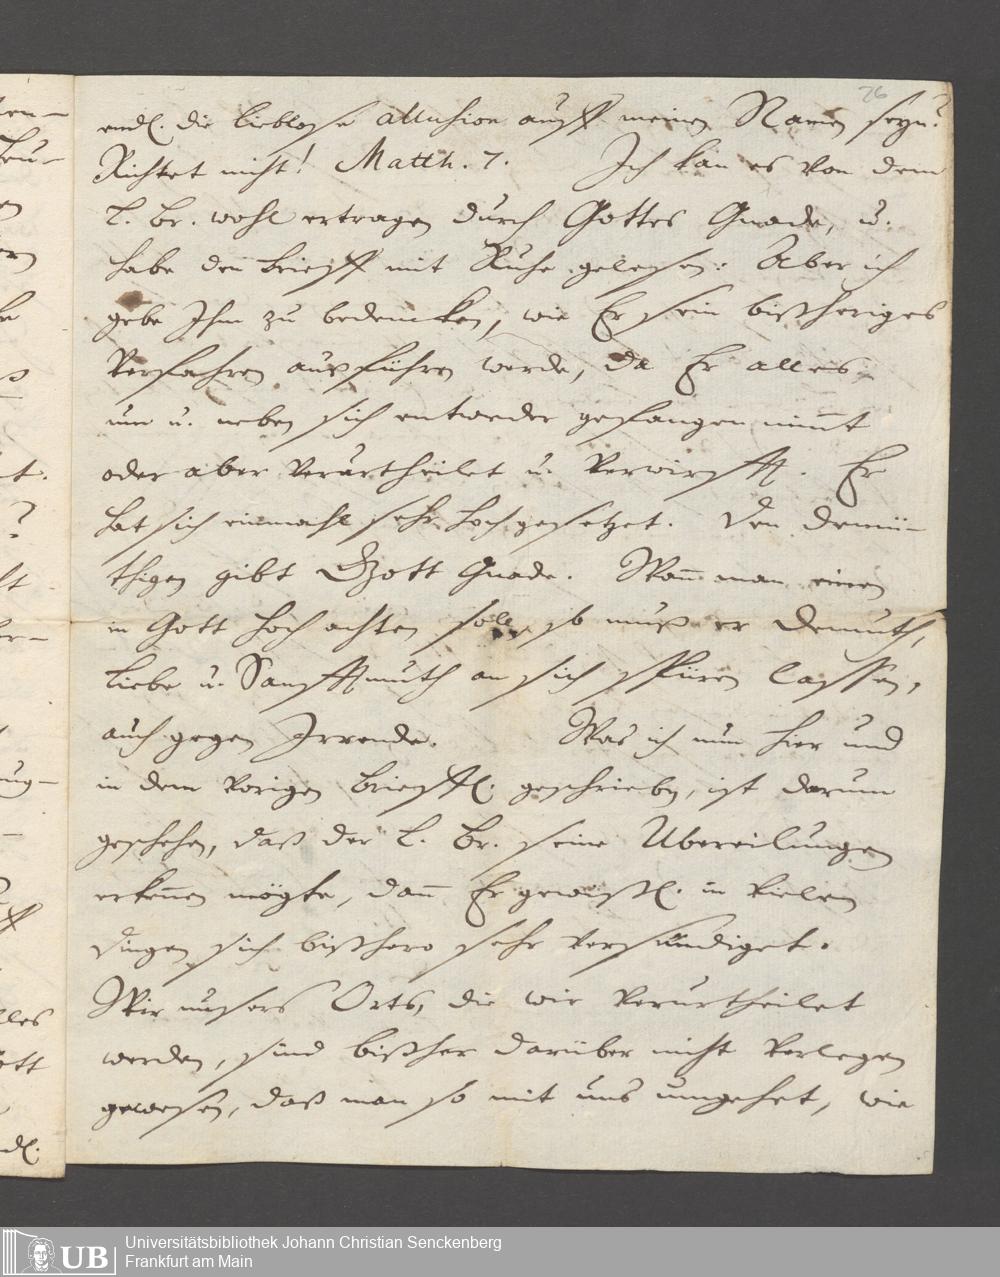 76
endl. die lieblose allusion auff meinen Namen seyn?
Richtet nicht! Matth. 7. Ich kan es von dem
l. Br. wohl ertragen durch Gottes Gnade, u.
habe den Brieff mit Ruhe gelesen: Aber ich
gebe Ihm zu bedencken, wie Er sein bißheriges
Verfahren außführen werde, da Er alles
um u. neben sich entweder gefangen nimt
oder aber verurtheilet u. verwirfft. Er
hat sich einmahl sehr hoch gesetzet. Den demü-
thigen gibt Gott Gnade. Wann man einen
in Gott hoch achten soll, so muß er Demuth,
Liebe u. Sanfftmuth an sich spüren lassen,
auch gegen Irrende. Was ich nun hier und
in dem vorigen Brieffl. geschrieben, ist darum
geschehen, daß der l. Br. seine Übereilungen
erkennen mögte, dann Er gewißl. in vielen
Dingen sich bißhero sehr versündiget.
Wir unsers Orts, die wir verurtheilet
werden, sind bißher darüber nicht verlegen
gewesen, daß man so mit uns umgehet, wie
Universitätsbibliothek Johann Christian Senckenberg
UB Frankfurt am Main